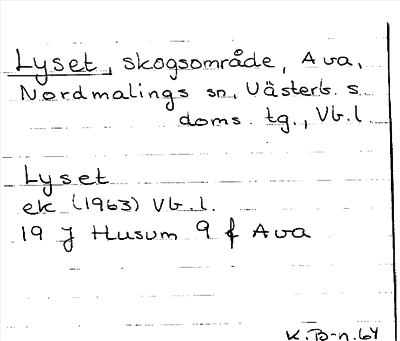 Lyset, skogsområde, Ava,
Nordmalings sn, Västerb. s.
doms. tg., Vb.l
Lyset
ek (1963) Vb.l.
19 J Husum 9 f Ava
K.B-n.64